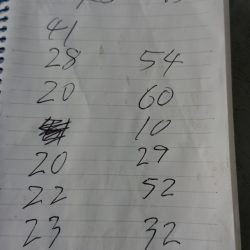 41
28 54
20 60
10
20 29
22 52
23 32